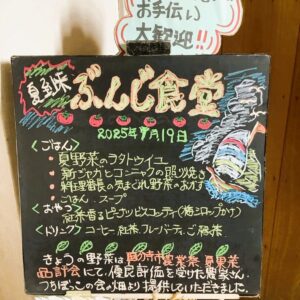 お手伝い
大歓迎!!
夏到来
ぶんじ食堂
2025年7月19日
<ごはん>
・夏野菜のラタトゥイユ
・新ジャガとコンニャクの照り焼き
・料理番長の気まぐれ野菜のおかず
・ごはん、スープ
<おやつ>
紅茶香るピーナッツビスコッティ(梅シロップがけ)
<ドリンク>コーヒー、紅茶、フレーバーティ、ご褒美
きょうの野菜は国分寺市農業祭 夏果菜
品評会にて、優良評価を受けた農家さん、
つちぼっこの会の畑より提供していただきました。